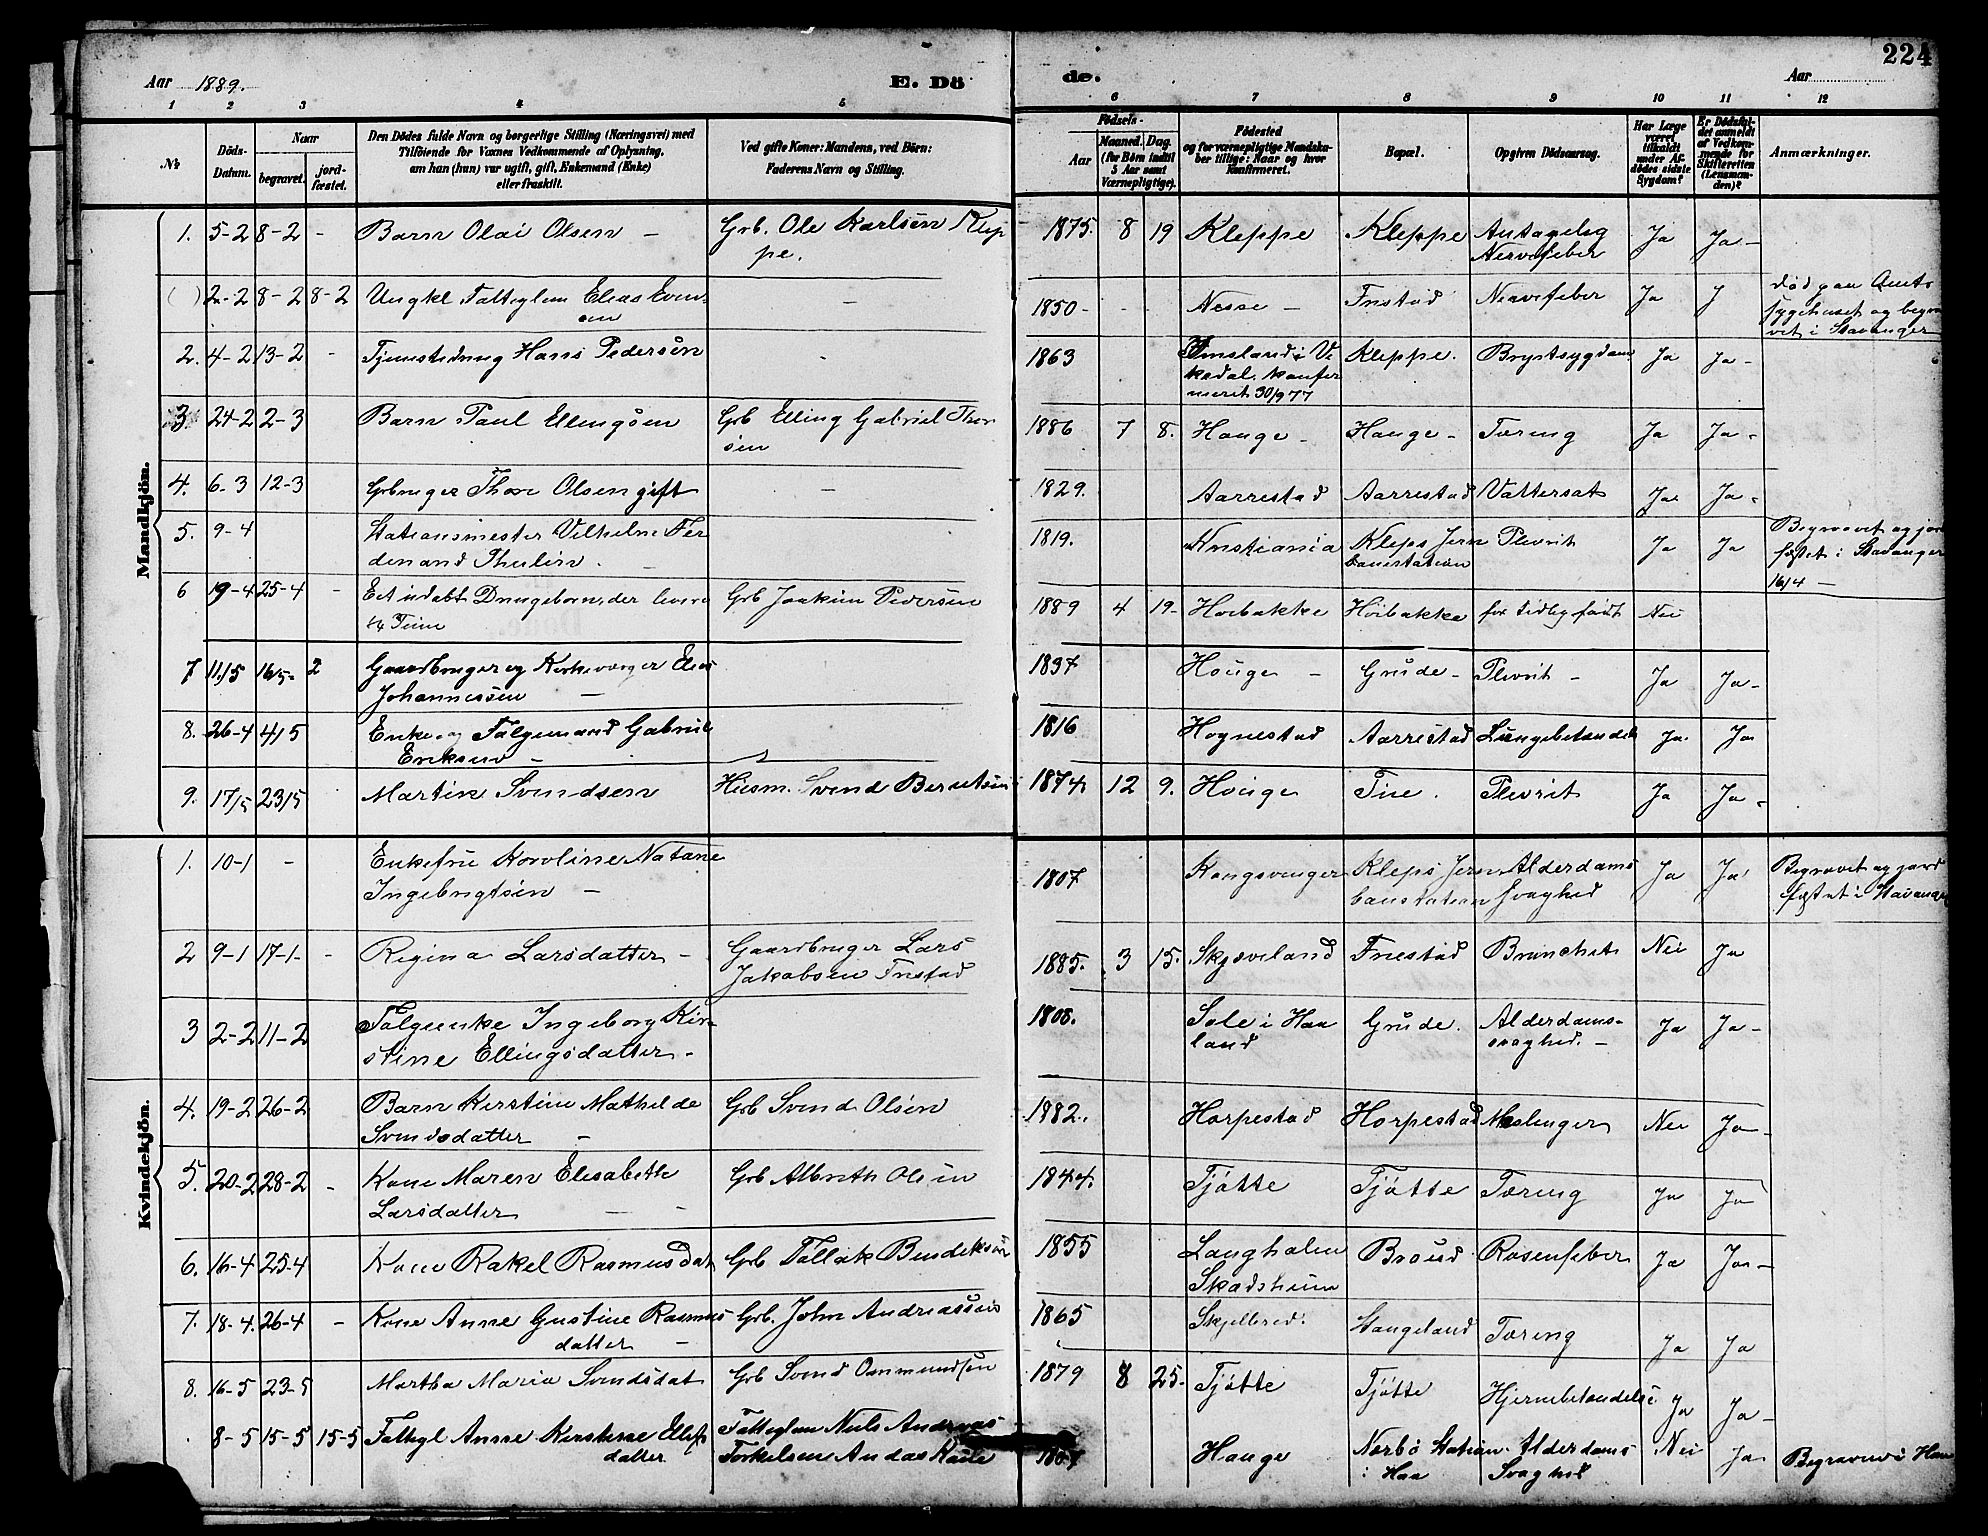 224
Aar 1889. E. Dö
de. Aar
1 2 3 4 5 6 7 8 9 10 11 12
№ Döds-Datum. Naar begravet. jordfæstet. Den Dödes fulde Navn og borgerlige Stilling (Næringsvei) med Tilföiende for Voxnes Vedkommende af Oplysning, om han (hun) var ugift, gift, Enkemand (Enke) eller fraskilt. Ved gifte Koner: Mandens, ved Börn: Faderens Navn og Stilling.
Födsels- Aar Maaned. Dag. (for Börn indtil 5 Aar samt Værnepligtige). Födested og for værnepligtige Mandskaber tillige: Naar og hvor konfirmeret. Bopæl. Opgiven Dödsaarsag. Har Læge været tilkaldt under Afdödes sidste Sygdom? Er Dödsfaldet anmeldt af Vedkommende for Skifteretten (Lensmanden)? Anmærkninger.
Mandkjön.
1. 5-2 8-2 - Barn Olai Olsen - Grb. Ole Karlsen Klep
pe. 1875. 8 19 Kleppe Kleppe Antagelig
Nervefeber Ja Ja-
( ) 2-2 8-2 8-2 Ungkl Fattiglem Elias Even-
sen - 1850- - - Nesse - Friestad Nervefeber Ja J død paa Amts
sygehuset og begra
vet i Stavanger
2. 4-2 13-2 - Tjenestedreng Hans Pedersen - 1863 Imsland i Vi
kedal. Konfir
meret 30/9 77 Kleppe. Brystsygdom Ja Ja-
3 24-2 2-3 Barn Paul Ellingsen Grb Elling Gabriel Thor
sen 1886 7 8. Hauge - Hauge - Tæring Ja Ja-
4. 6-3 12-3 Grbruger Thore Olsen gift - 1829. Aarrestad Aarrestad Vattersot Ja Ja-
5. 9-4 Stationsmester Vilhelm Fer
denand Thulin. - 1819. Kristiania Kleps Jern
banestation Plevrit Ja Ja Begravet og jord
fæstet i Stavanger
16/4 -
6 19-4 25-4 - Et udøbt Drengebarn, der levede
1/4 Time Grb Joakim Pedersen 1889 4 19- Høibakke Høibakke for tidlig født Nei
7 11/5 16/5- 2 Gaardbruger og Kirkeværger Elias
Johannessen - 1837 Houge - Grude - Plevrit - Ja Ja-
8. 26-4 4/5 Enke og Følgemand Gabriel
Eriksen - 1816 Hognestad Aarrestad Lungebetændels Ja. Ja
9. 17/5 23/5 Martin Svendsen Husm. Svend Berntsen 1874 12 9. Houge Tue. Plevrit Ja Ja-
Kvindekjön.
1. 10-1 - Enkefru Karoline Natane
Ingebrigtsen - 1807 Kongsvinger Kleps Jern
banestation Alderdoms
svaghed Ja Ja Begravet og jord
fæstet i Stavanger
2 9-1 17-1- - Regina Larsdatter - Gaardbruger Lars
Jakobsen Friestad 1885. 3 15. Skjæveland Friestad Brunchit Nei Ja
3 2-2 11-2 Følgeenke Ingeborg Kir-
stine Ellingsdatter - 1808. Sole i Haa
land Grude. Alderdoms-
svaghed. - Ja Ja-
4. 19-2 26-2 Barn Kirstine Mathilde
Svendsdatter - Grb Svend Olsen 1882. Horpestad Horpestad Meslinger Nei Ja-
5. 20-2 28-2 - Kone Maren Elisabeth
Larsdatter - - Grb Albreth Olsen 1844. Tjøtte Tjøtte Tæring Ja Ja
6. 16-4 25-4 Kone Rakel Rasmusdat Grb Tollak Bendiksen 1855 Langholen
Skadsheim Braud Rosenfeber Ja Ja-
7. 18-4. 26-4 - Kone Anne Gustine Rasmus
datter - Grb. John Andreassen 1865 Skjelbred. Stangeland Tæring Ja Ja
8. 16-5 23-5 Martha Maria Svendsdat Grb Svend Ommundsen 1879 8 25- Tjøtte Tjøtte Hjernebetændelse Ja Ja-
8-5 15-5 15-5 Fattigl Anne Kirstine Ellefs
datter Fattiglem Niels Andreas
Torkelsen 1807 Hauge Nærbø Station
i Haa Alderdoms
Svaghed Nei Ja Begravet i Haa